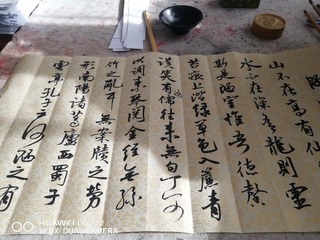 山不在高有仙
水不在深有龍則靈
斯是陋室惟吾德馨
苔痕上階綠草色入簾青
談笑有鴻儒往來無白丁可
以調素琴閱金經無絲
竹之亂耳無案牘之勞
形南陽諸葛廬西蜀子
雲亭孔子云何陋之有
HUAWEI
DUAL CAMERA